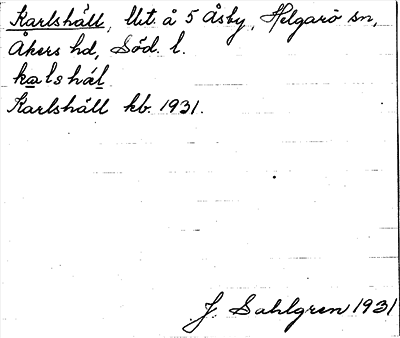 Karlshäll, lht. å 5 Åsby, Helgarö sn,
Åkers hd, Söd. l.
kalshäl
Karlshäll kb. 1931.
J. Sahlgren 1931